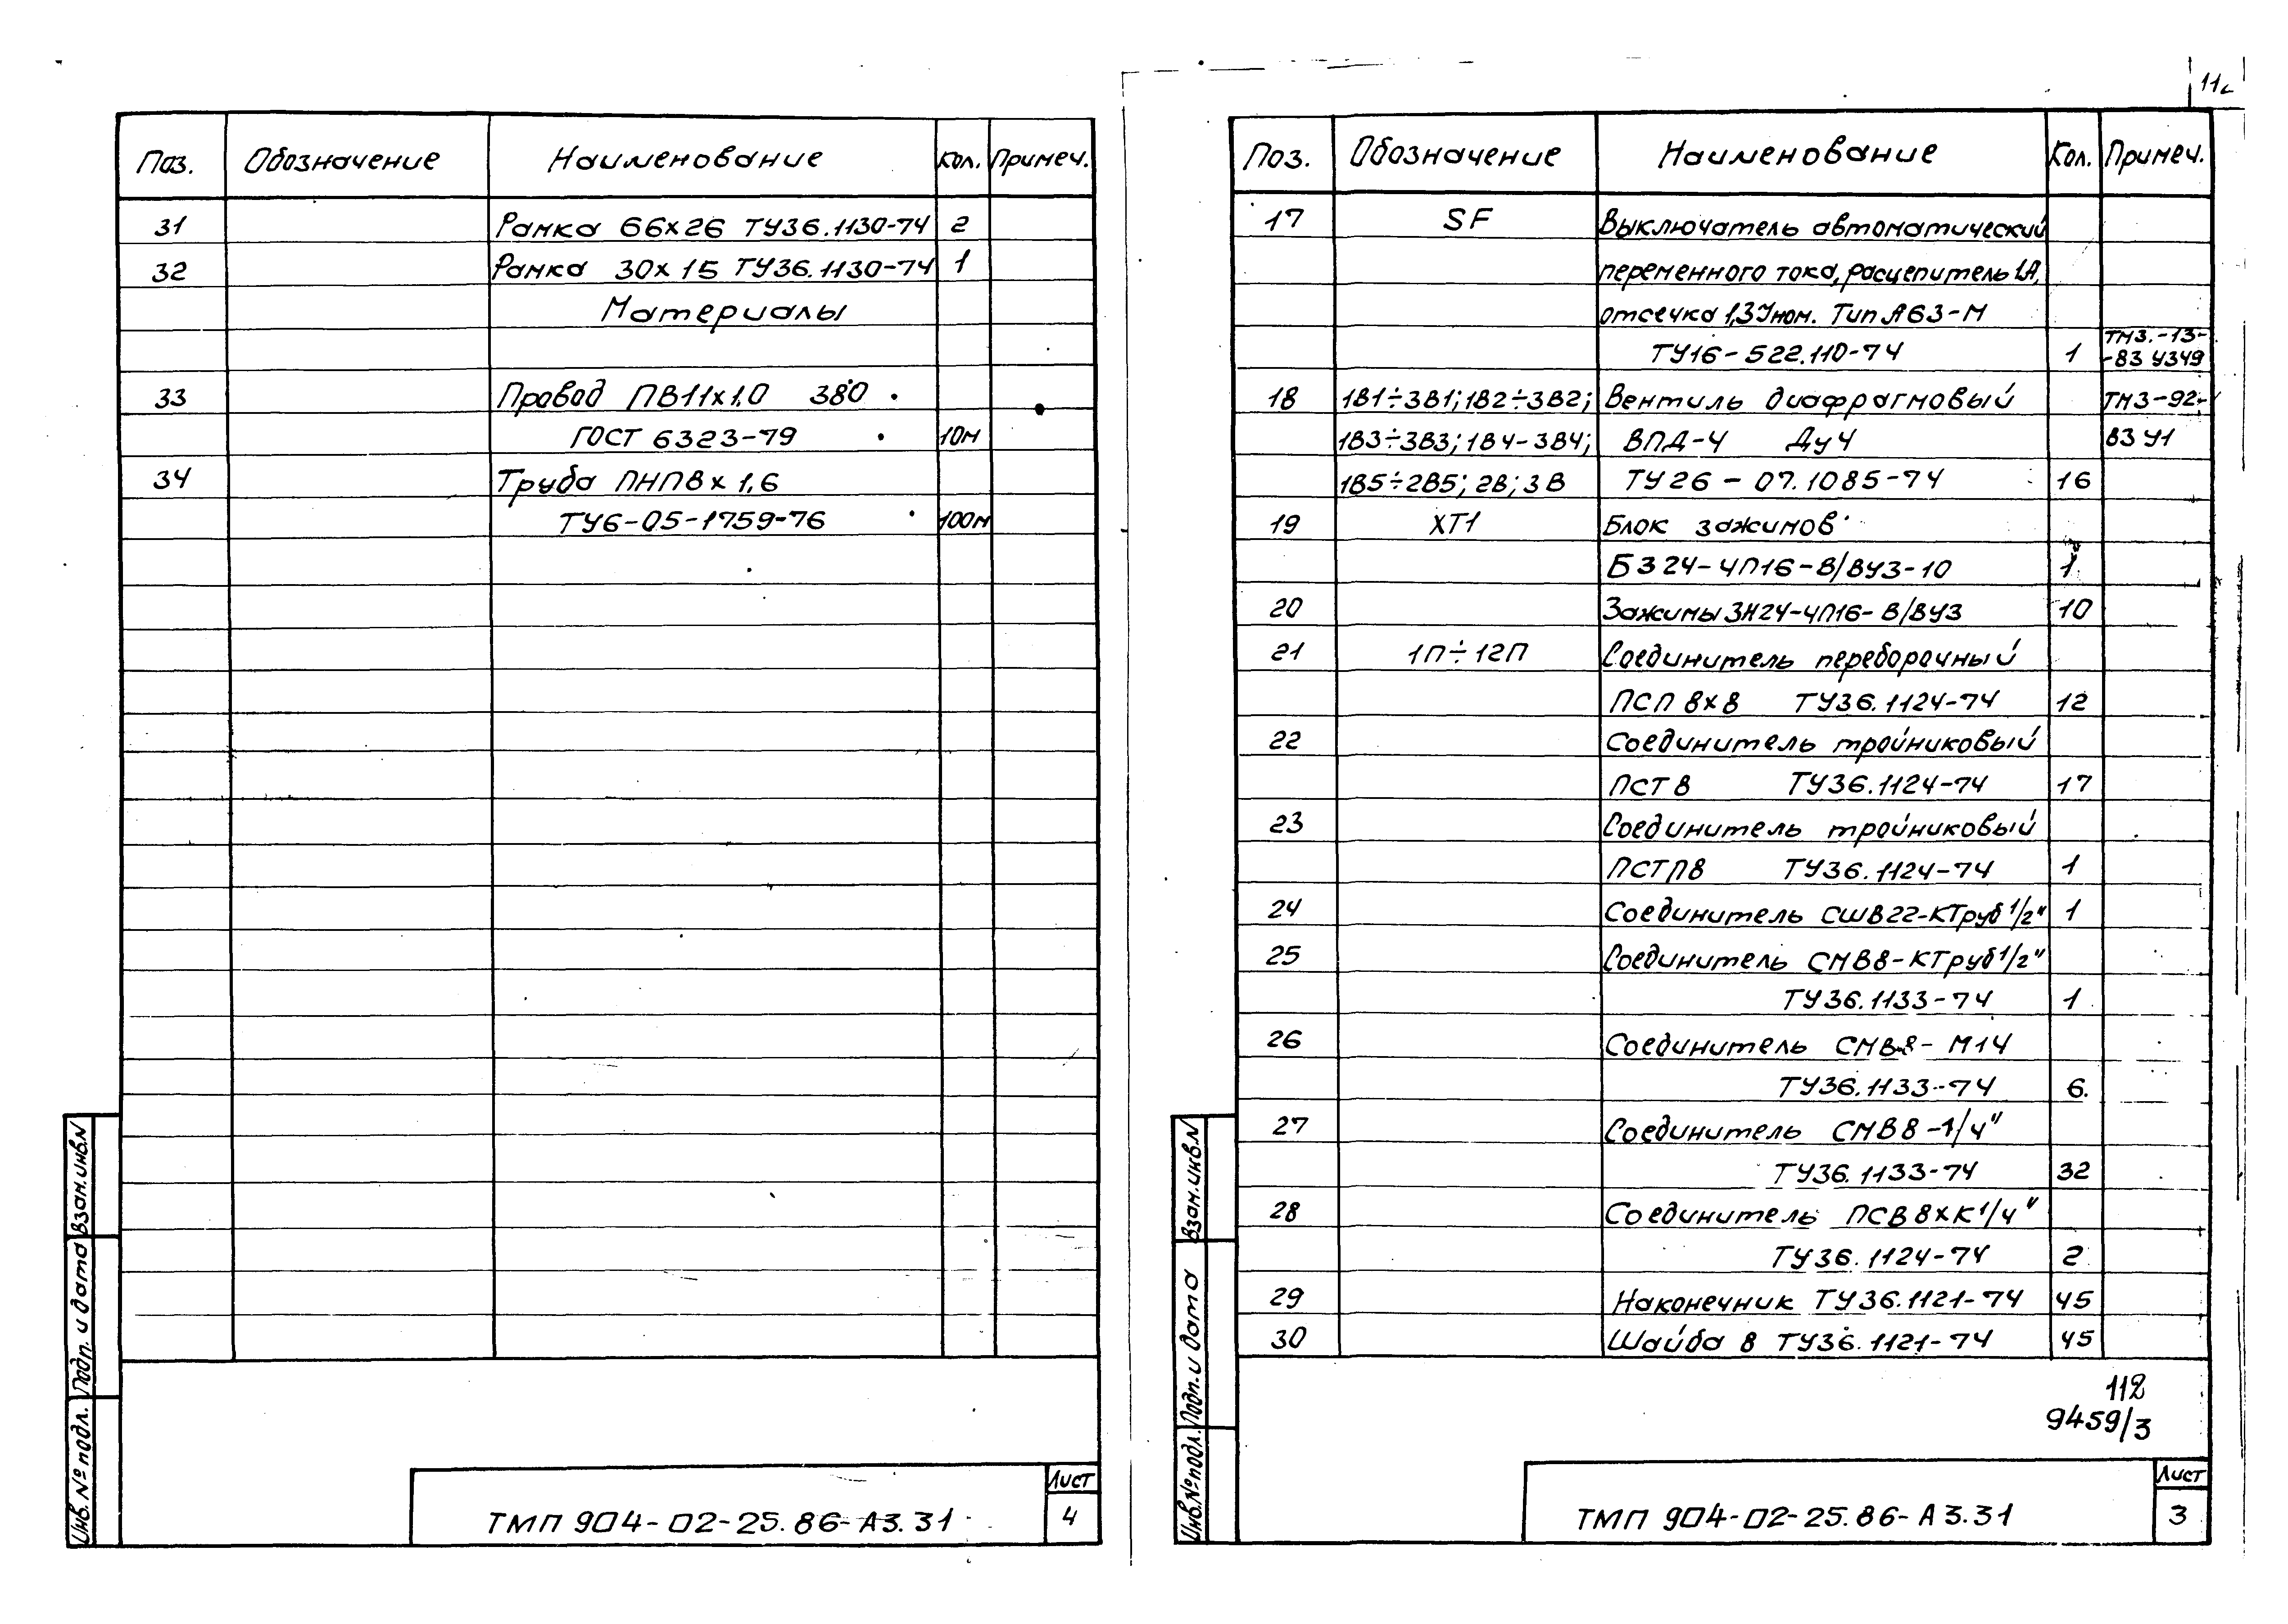 Поз. Обозначение Наименование Кол. Примеч.
31 Рамка 66х26 ТУ36.1130-74 2
32 Рамка 30х15 ТУ36.1130-74 1
Материалы
33 Провод ПВ1 1х1,0 380
ГОСТ 6323-79 10м
34 Труба ПНП8х1,6
ТУ6-05-1759-76 100м
Взам.инв.N
Подп. и дата
Инв.№подл.
ТМП 904-02-25.86-А3.31
Лист
4
Поз. Обозначение Наименование Кол. Примеч.
17 SF Выключатель автоматический
переменного тока, расцепитель 1А,
отсечка 1,3Jном. Тип А63-М
ТУ16-522.110-74 1 ТМ3.-13-
-83 У349
18 1В1÷3В1; 1В2÷3В2; Вентиль диафрагмовый ТМ3-92-
1В3÷3В3; 1В4-3В4; ВПД-4 Ду4 83 У1
1В5÷2В5; 2В; 3В ТУ26-07.1085-74 16
19 ХТ1 Блок зажимов
БЗ24-4П16-В/ВУ3-10 1
20 Зажимы ЗН24-4П16-В/ВУ3 10
21 1П÷12П Соединитель переборочный
ПСП 8х8 ТУ36.1124-74 12
22 Соединитель тройниковый
ПСТ8 ТУ36.1124-74 17
23 Соединитель тройниковый
ПСТП8 ТУ36.1124-74 1
24 Соединитель СШВ22-КТруб1/2" 1
25 Соединитель СМВ8-КТруб1/2"
ТУ36.1133-74 1
26 Соединитель СМВ8-М14
ТУ36.1133-74 6.
27 Соединитель СМВ8-1/4"
ТУ36.1133-74 32
28 Соединитель ПСВ8хК1/4"
ТУ36.1124-74 2
29 Наконечник ТУ36.1121-74 45
30 Шайба 8 ТУ36.1121-74 45
112
9459/3
Взам.инв.N
Подп. и дата
Инв.№подл.
ТМП 904-02-25.86-А3.31
Лист
3